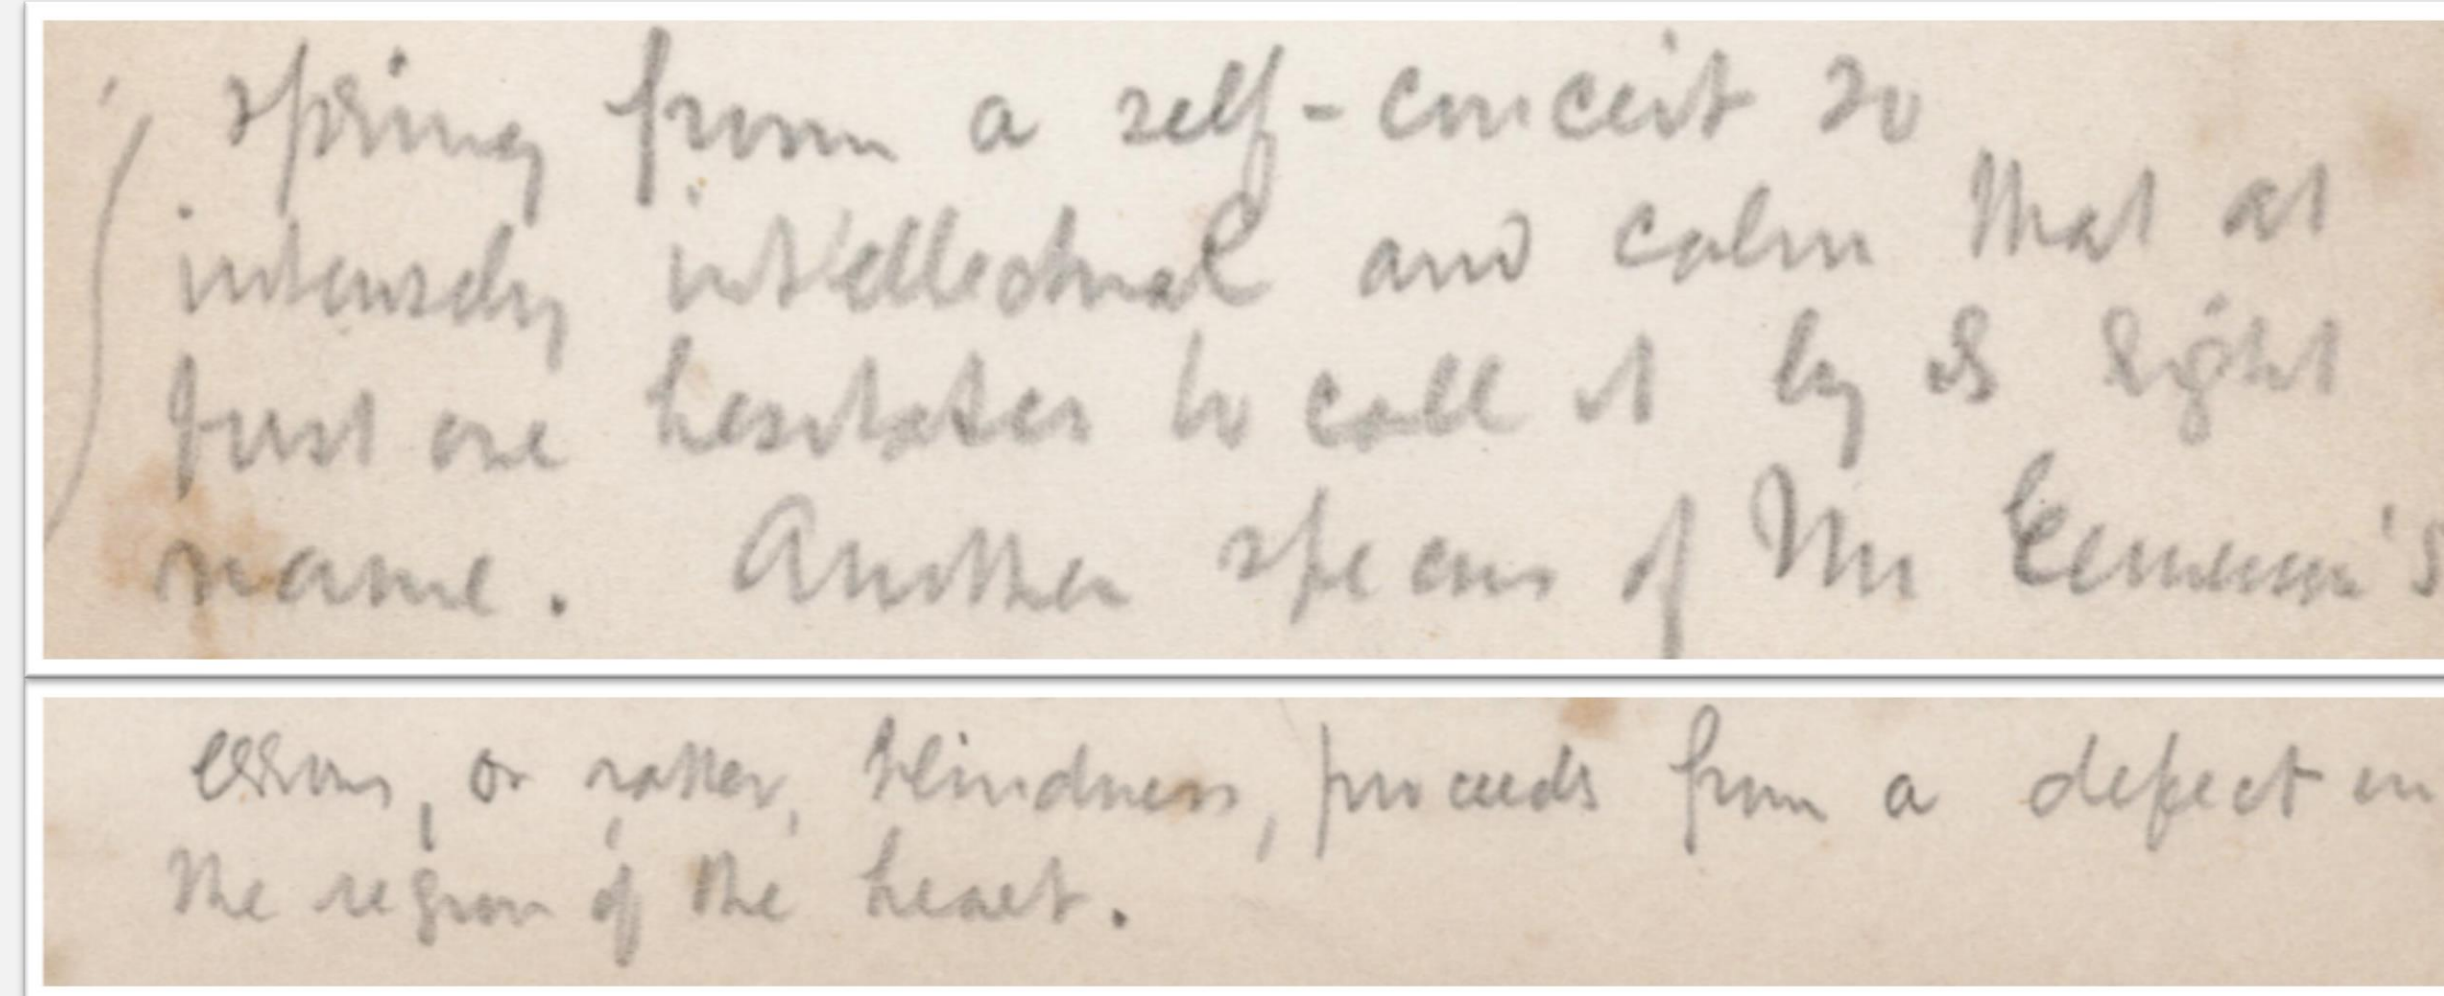 spring from a self-conceit so
intensely intellectual and calm that at
first one hesitates to call it by its right
name. Another species of Mr Emerson's
errors, or rather, blindness, proceeds from a defect in
the region of the heart.